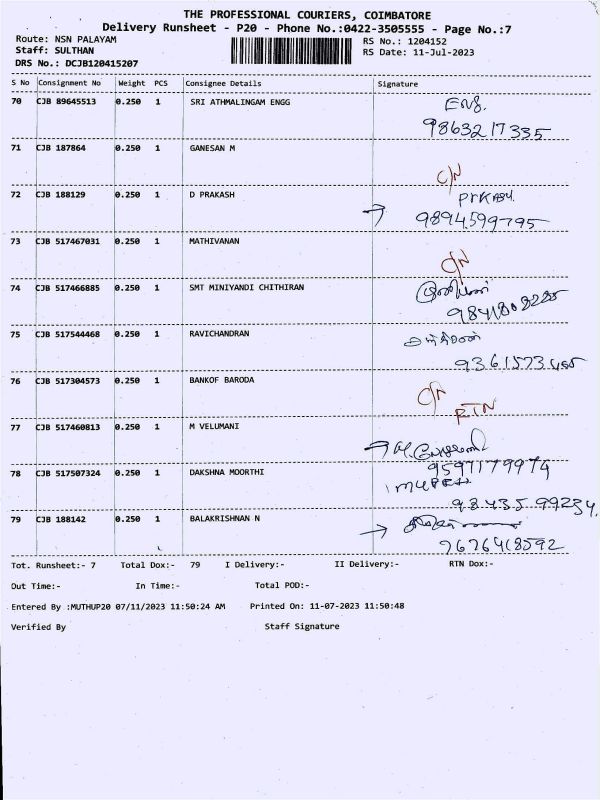 THE PROFESSIONAL COURIERS, COIMBATORE
Delivery Runsheet - P20 - Phone No.:0422-3505555 - Page No.:7
Route: NSN PALAYAM
RS No.: 1204152
Staff: SULTHAN
RS Date: 11-Jul-2023
DRS No.: DCJB120415207
S No Consignment No Weight PCS Consignee Details Signature
70 CJB 89645513 0.250 1 SRI ATHMALINGAM ENGG ENG.
9863217335
71 CJB 187864 0.250 1 GANESAN M
C/N
72 CJB 188129 0.250 1 D PRAKASH
→ 9894599795
73 CJB 517467031 0.250 1 MATHIVANAN
C/N
74 CJB 517466885 0.250 1 SMT MINIYANDI CHITHIRAN
75 CJB 517544468 0.250 1 RAVICHANDRAN
76 CJB 517304573 0.250 1 BANKOF BARODA C/N
RTN
77 CJB 517460813 0.250 1 M VELUMANI
9597179974
78 CJB 517507324 0.250 1 DAKSHNA MOORTHI
98435 99234
79 CJB 188142 0.250 1 BALAKRISHNAN N →
7676418592
Tot. Runsheet:- 7 Total Dox:- 79 I Delivery:- II Delivery:- RTN Dox:-
Out Time:- In Time:- Total POD:-
Entered By :MUTHUP20 07/11/2023 11:50:24 AM Printed On: 11-07-2023 11:50:48
Verified By Staff Signature